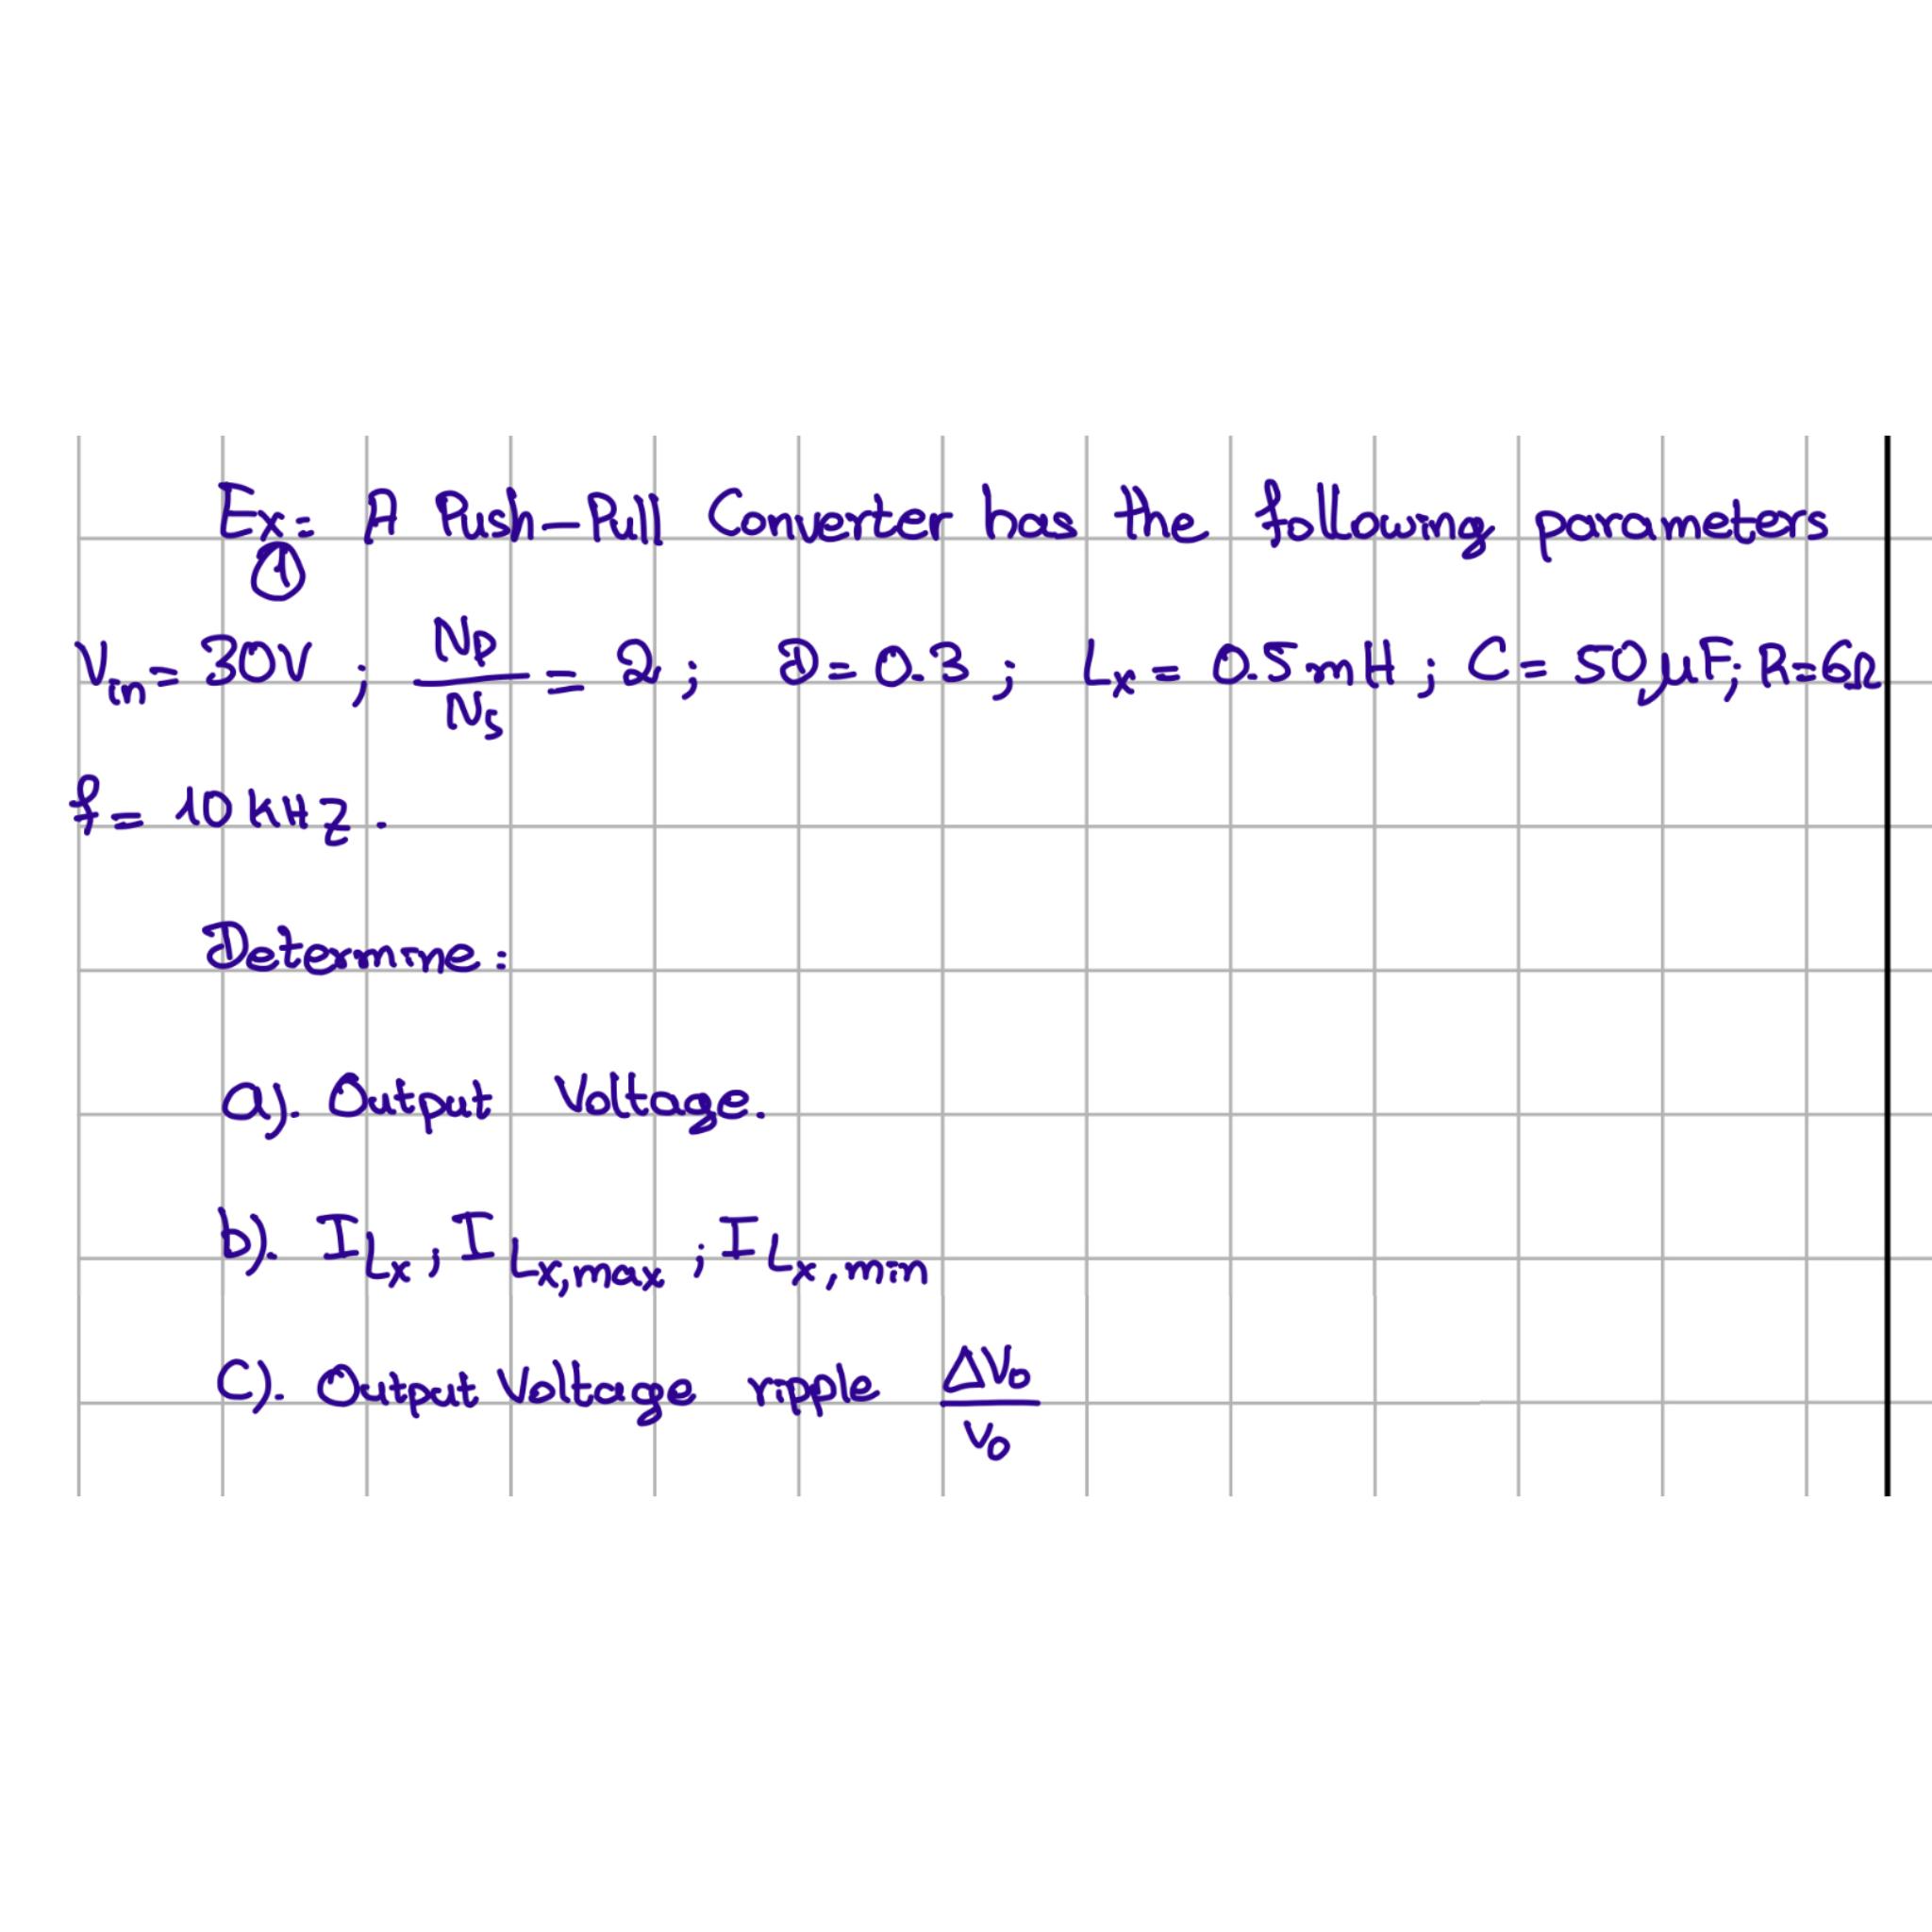 Ex: A Push-Pull Converter has the following parameters
1
Vin = 30V ; Np/Ns = 2 ; D = 0.3 ; Lx = 0.5 mH ; C = 50 μF ; R = 6Ω
f = 10 kHz.
Determine:
a). Output Voltage.
b). ILx ; ILx,max ; ILx,min
C). Output Voltage ripple ΔVo/Vo